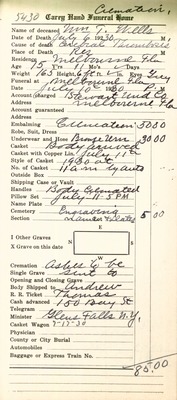 Cremation,
5430 Carey Hand Funeral Home
Name of deceased Wm J. Wells
Date of Death July 6 1930 M
Cause of Death Cerebral Thrombosis
Place of Death Res
Residence Melbourne Fla
Age 75 Yrs 11 Mo's Days
Weight 165 Height 6 ft Eyes Grey
Funeral at Melbourne Fla
Date July 10 1930
Account charged Stewart Und Co
Address Melbourne Fla
Embalming Cremation 50 00
Robe, Suit, Dress
Underwear and Hose Bronze Urn 30 00
Casket Body arrived
Casket with Copper Lin. July 11th
Style of Casket 1930 at
No. of Casket 11 am by auto
Outside Box
Shipping Case or Vault
Handles Body Cremated
Pillow Set July 11 - 5 PM
Name Plate
Cemetery Engraving
Section Names & Dates 5 00
N
W
E
I Other Graves
X Grave on this date
S
Cremation Ashes to be
Single Grave Sent to
Opening and Closing Grave
Body Shipped to Andrew
R. R. Ticket Thomas
Cash advanced 150 Bay St
Telegram
Minister Glens Falls N.Y.
Casket Wagon 7-17-30
Physician
County or City Burial
Automobiles
Baggage or Express Train No.
85.00